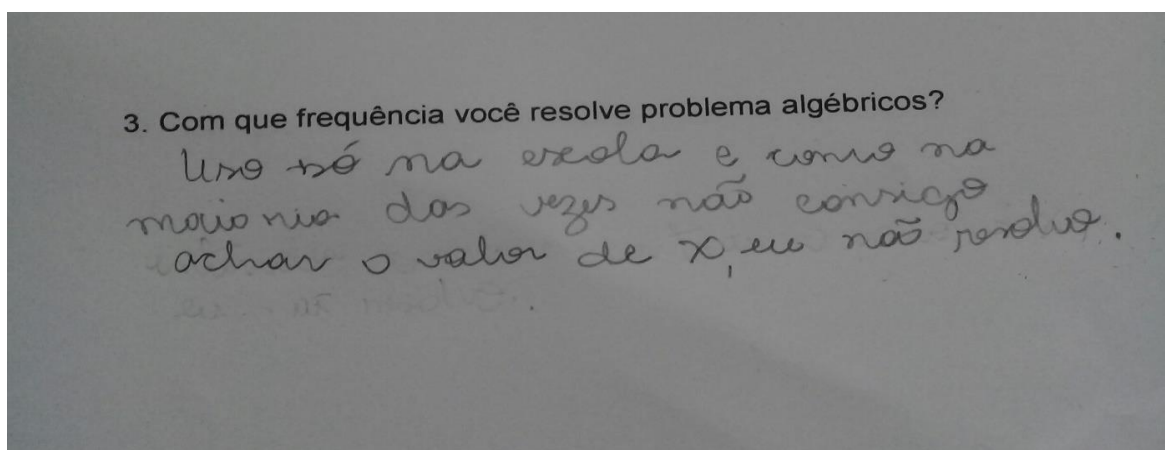 3. Com que frequência você resolve problema algébricos?
Uso só na escola e como na
maioria das vezes não consigo
achar o valor de x, eu não resolvo.